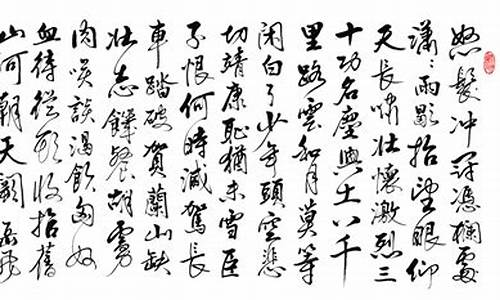 怒髮冲冠憑欄處
瀟〻雨歇抬望眼仰
天長嘯壯懷激烈三
十功名塵與土八千
里路雲和月莫等
閑白了少年頭空悲
切靖康恥猶未雪臣
子恨何時滅駕長
車踏破賀蘭山缺
壯志饑餐胡虜
肉咲談渴飲匈奴
血待從頭收拾舊
山河朝天闕岳飛